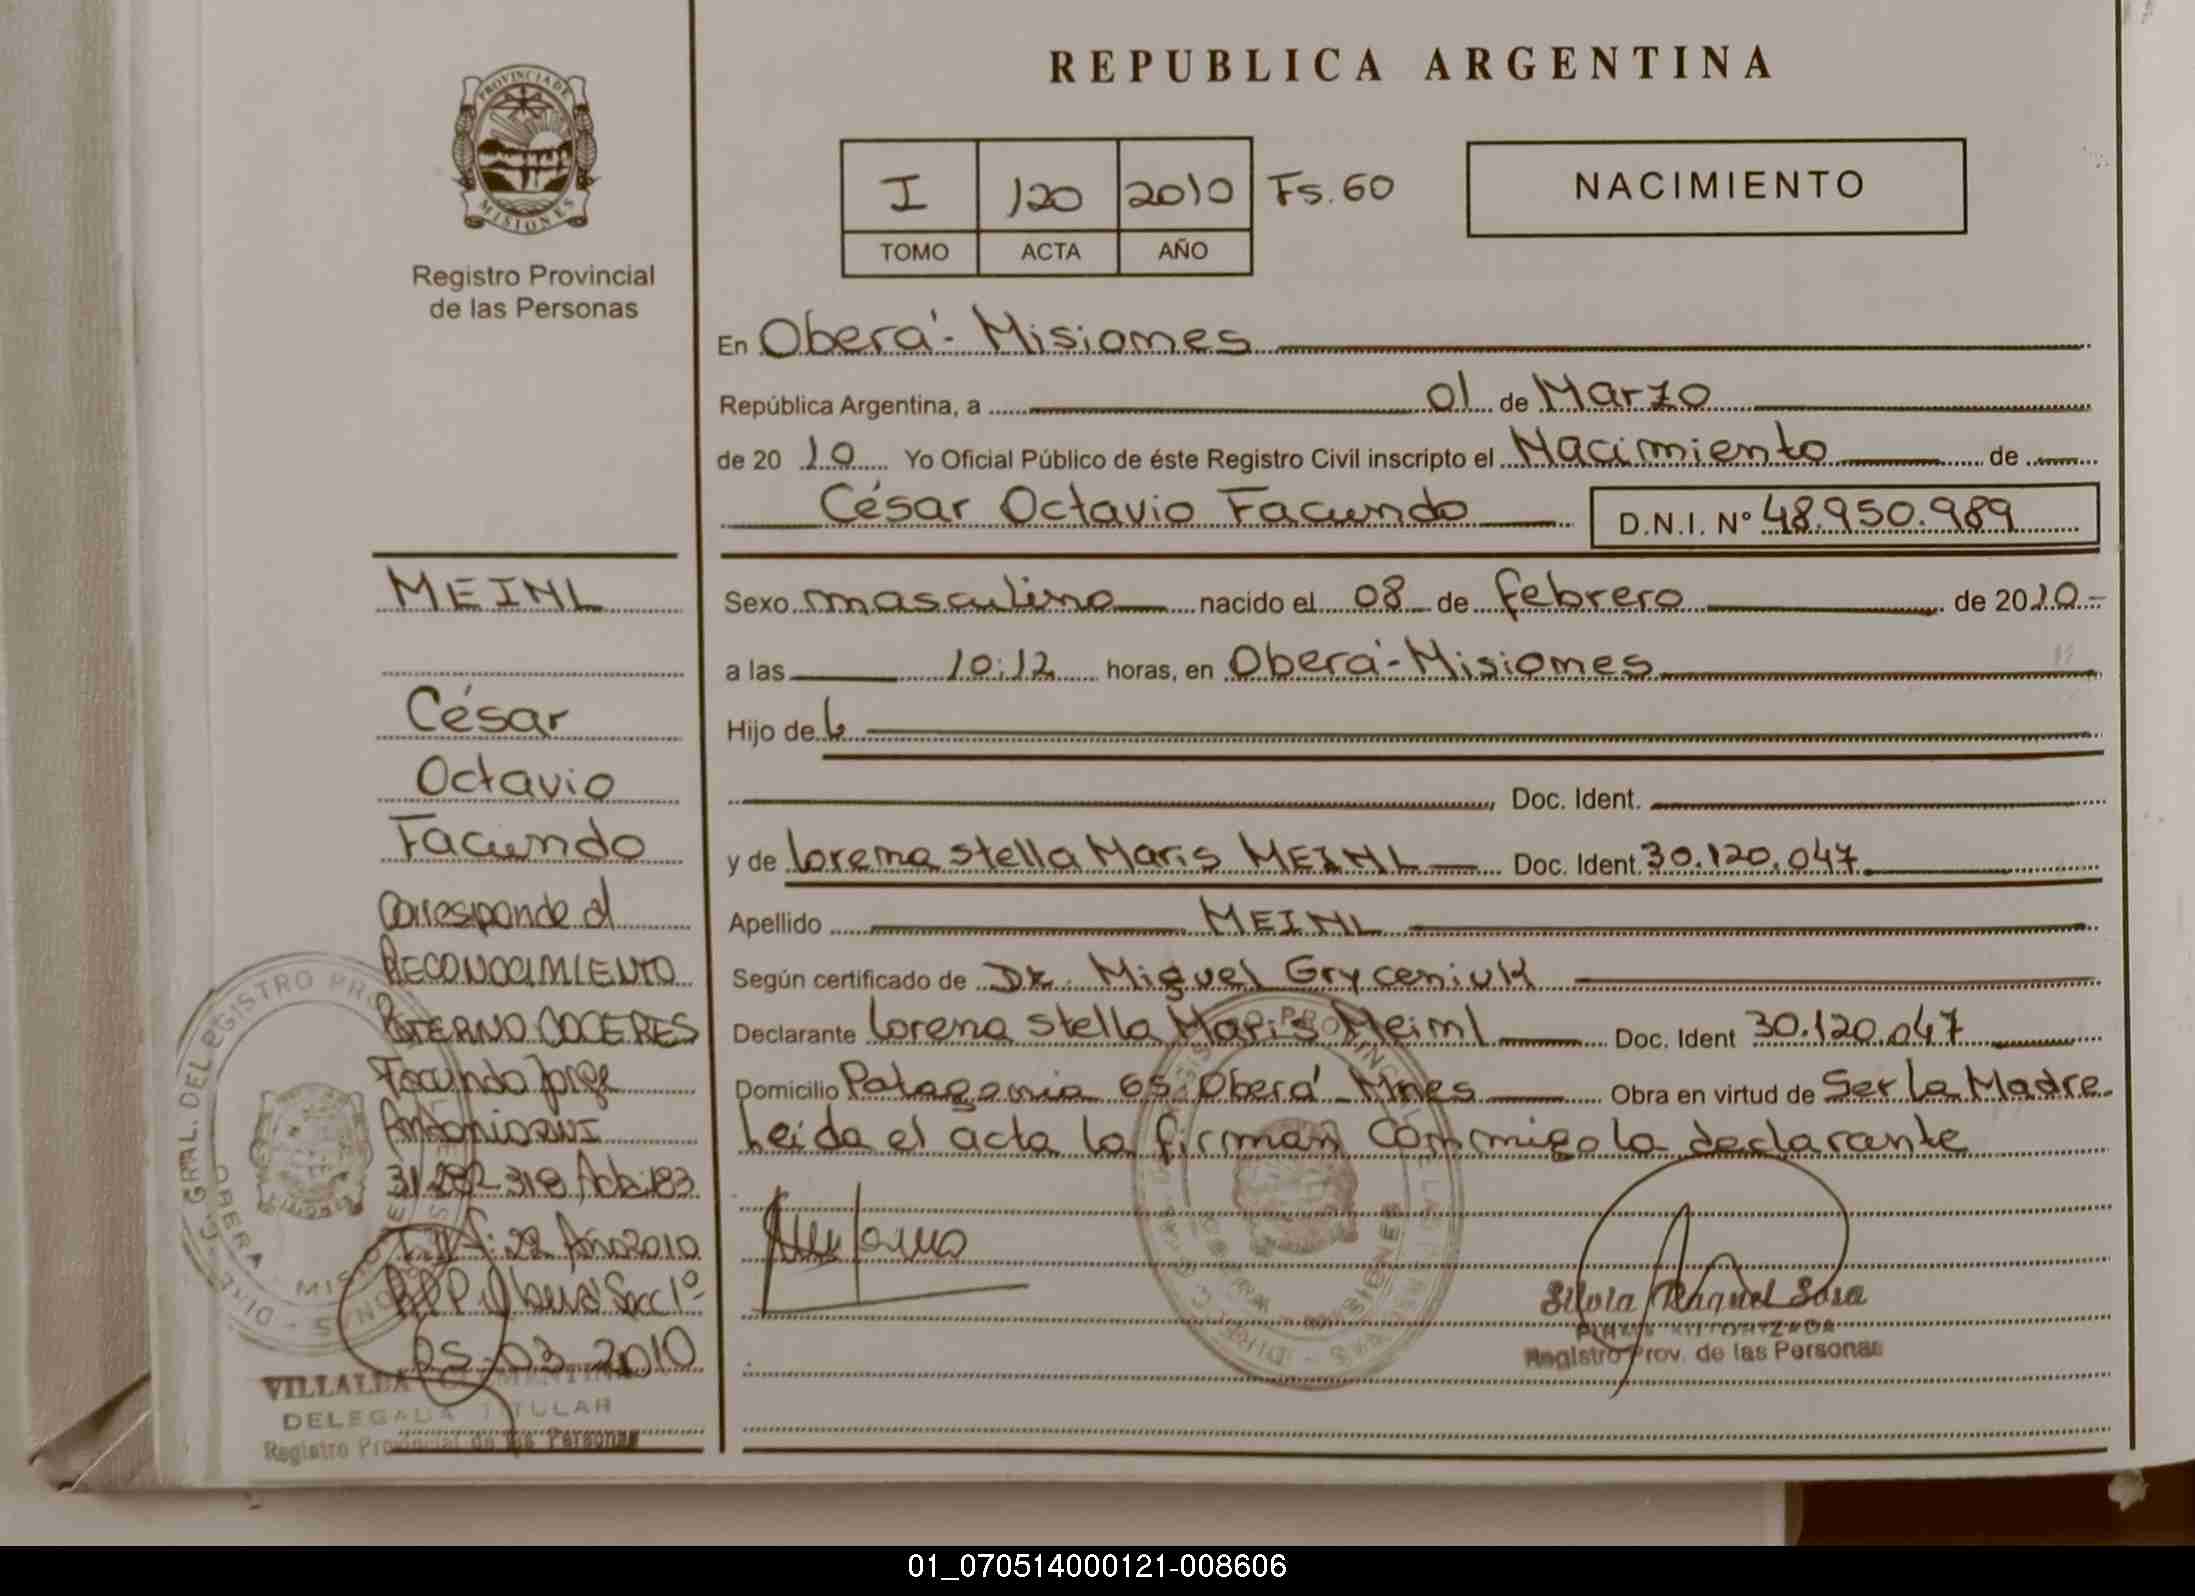 REPUBLICA ARGENTINA
PROVINCIA DE
MISIONES
Registro Provincial
de las Personas
I 120 2010 Fs. 60
TOMO ACTA AÑO
NACIMIENTO
En Oberá - Misiones
República Argentina, a 01 de Marzo
de 20 10 Yo Oficial Público de éste Registro Civil inscripto el Nacimiento de
César Octavio Facundo D.N.I. Nº 48.950.989
Sexo masculino nacido el 08 de febrero de 2010-
a las 10:12 horas, en Oberá - Misiones
Hijo de
Doc. Ident.
y de Lorena Stella Maris MEINL Doc. Ident. 30.120.047
Apellido MEINL
Según certificado de Dr. Miguel Gryceniuk
Declarante Lorena Stella Maris Meinl Doc. Ident 30.120.047
Domicilio Patagonia 65 Oberá - Mnes Obra en virtud de Ser la Madre.
Leida el acta la firman conmigo la declarante
Silvia Raquel Sosa
FIRMA AUTORIZADA
Registro Prov. de las Personas
MEINL
César
Octavio
Facundo
Corresponde al
RECONOCIMIENTO
PATERNO COCERES
Facundo Jorge
Antonio DNI
31.282.318 Acta: 83
Año 2010
RPP. Oberá Secc 1º
05-03-2010
VILLALBA
DELEGADA TITULAR
Registro Provincial de las Personas
01_070514000121-008606